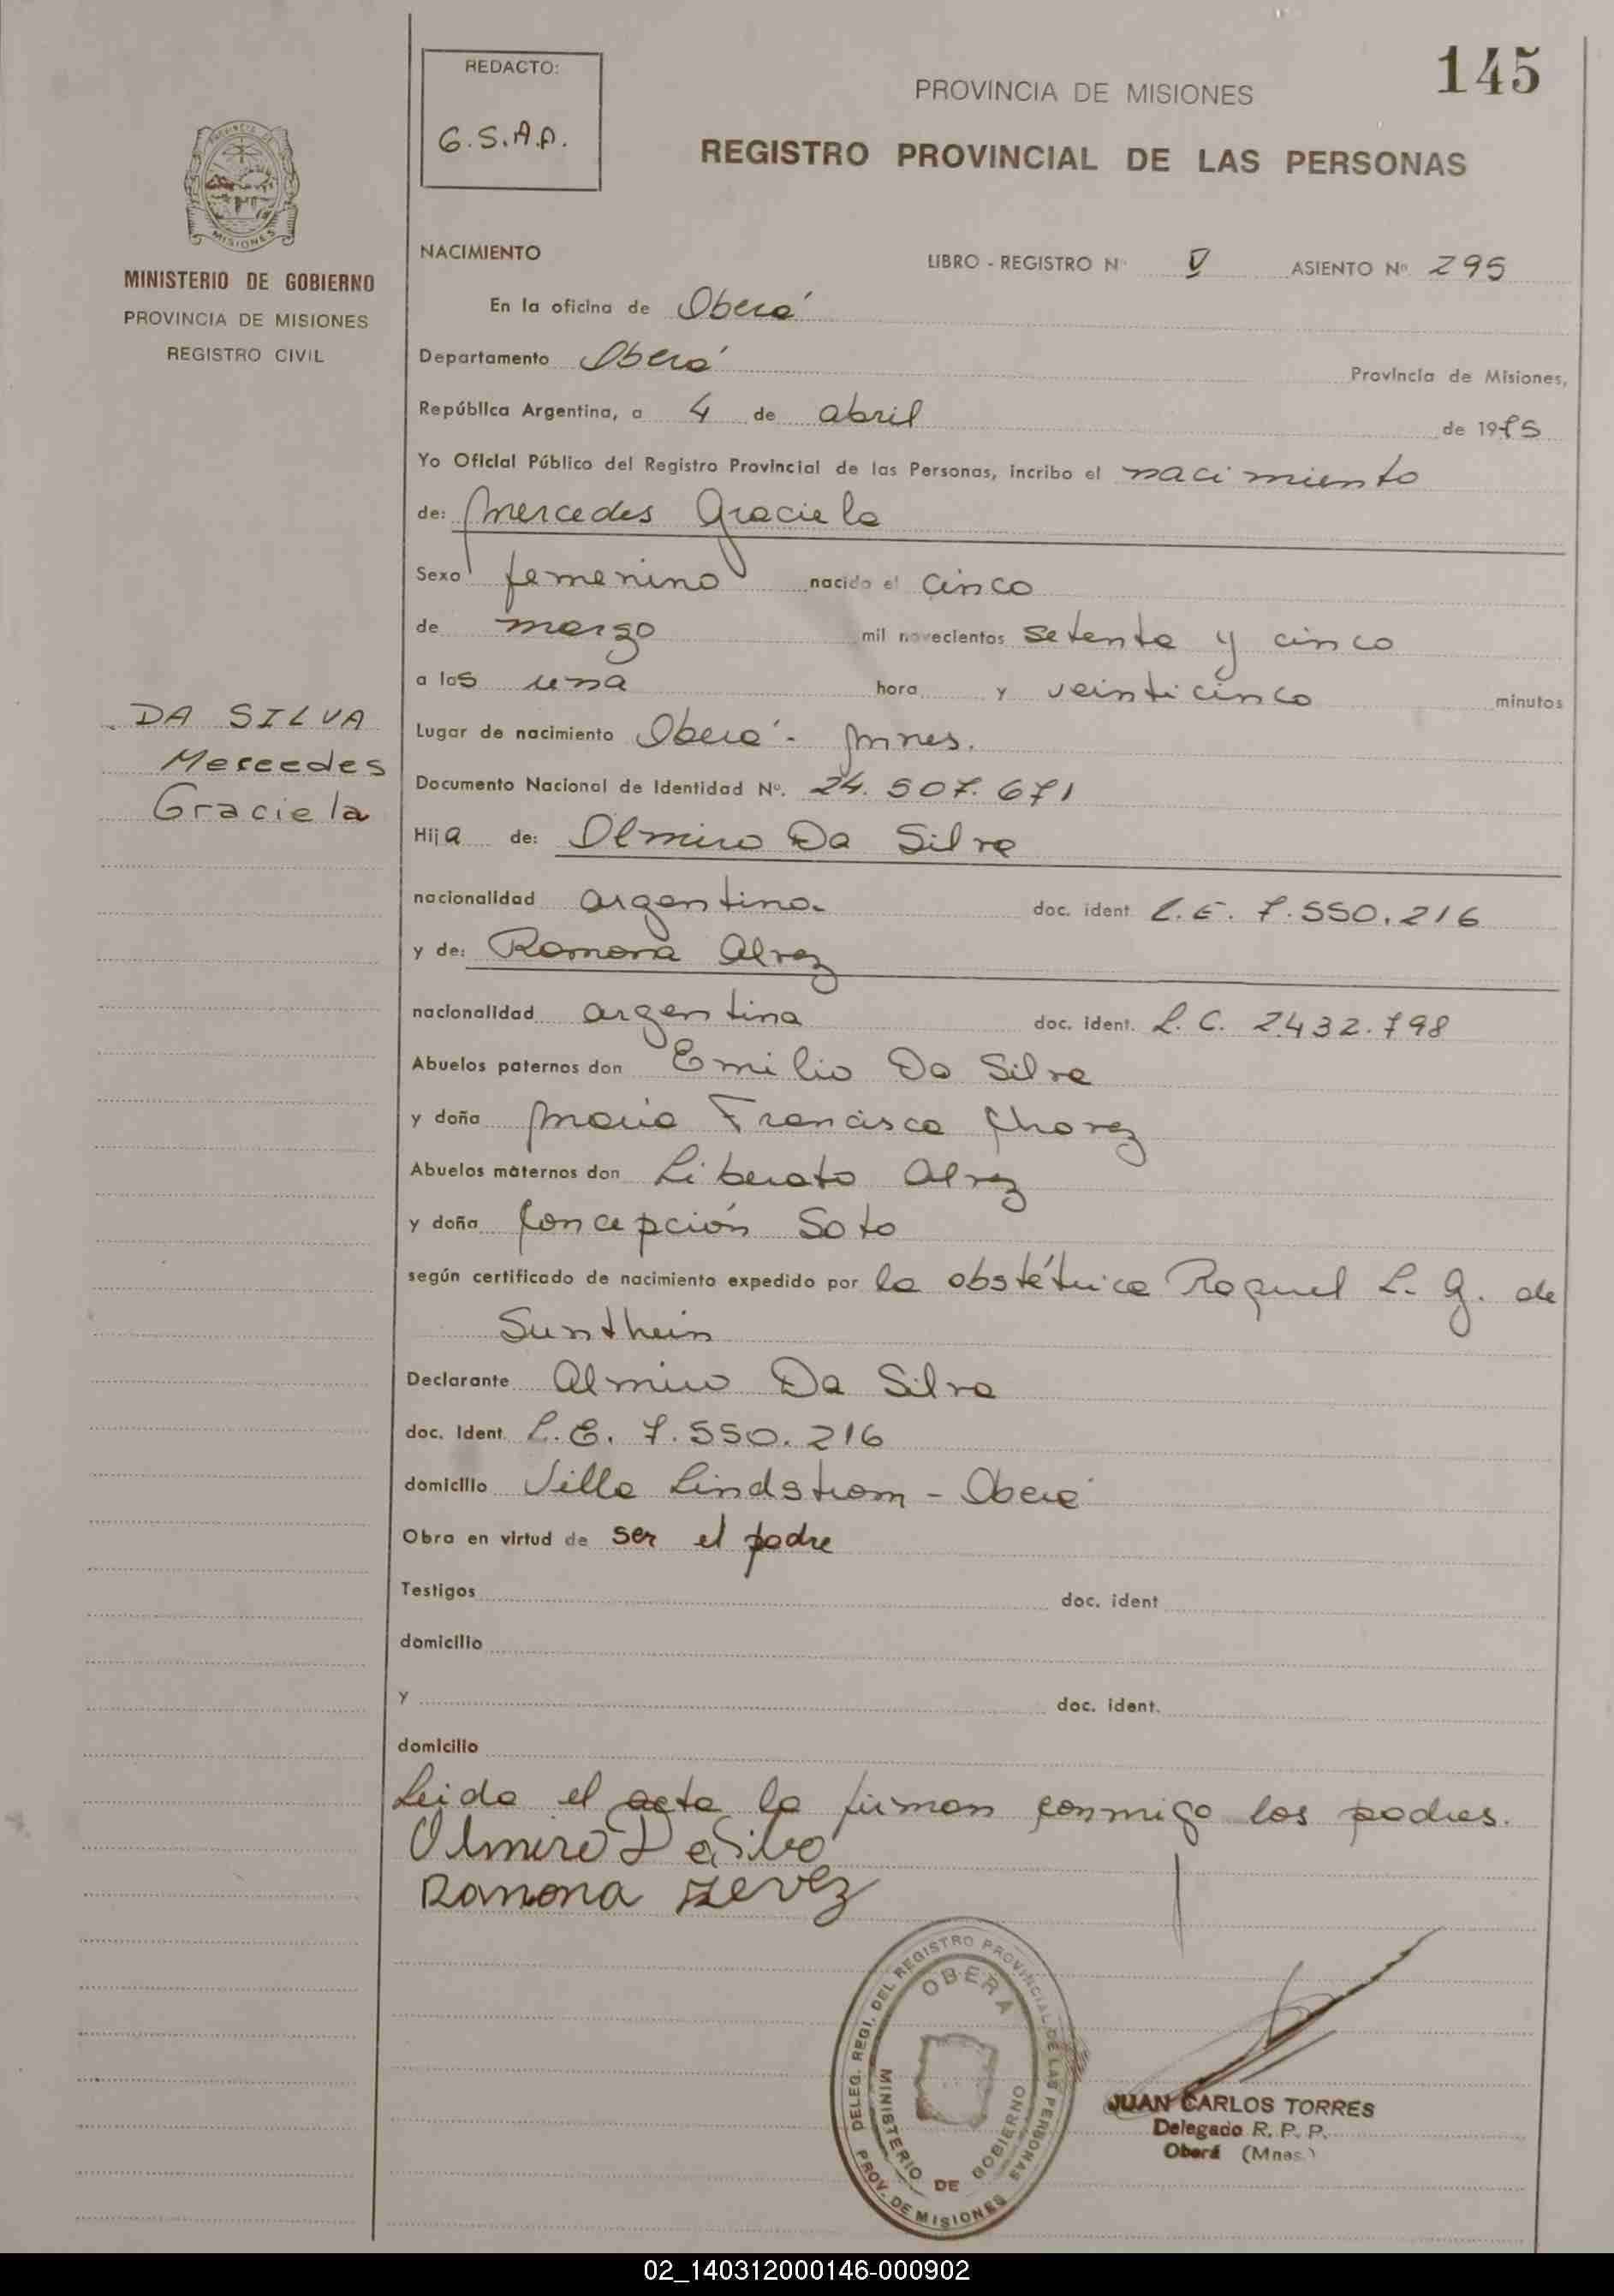 145
REDACTO:
G.S.A.A.
PROVINCIA DE MISIONES
REGISTRO PROVINCIAL DE LAS PERSONAS
MINISTERIO DE GOBIERNO
PROVINCIA DE MISIONES
REGISTRO CIVIL
NACIMIENTO
LIBRO - REGISTRO Nº V ASIENTO Nº 295
En la oficina de Oberá
Departamento Oberá Provincia de Misiones,
República Argentina, a 4 de abril de 1975
Yo Oficial Público del Registro Provincial de las Personas, incribo el nacimiento
de: Mercedes Graciela
Sexo femenino nacida el cinco
de marzo mil novecientos setenta y cinco
a las una hora y veinticinco minutos
DA SILVA
Mercedes
Graciela
Lugar de nacimiento Oberá - Mnes.
Documento Nacional de Identidad Nº. 24.507.671
Hija de: Olmiro Da Silva
nacionalidad argentino. doc. ident L.E. 7.550.216
y de: Ramona Alvez
nacionalidad argentina doc. ident. L.C. 2.432.798
Abuelos paternos don Emilio Da Silva
y doña María Francisca Chavez
Abuelos maternos don Liberato Alvez
y doña Concepción Soto
según certificado de nacimiento expedido por la obstétrica Raquel L. G. de
Sunthein
Declarante Olmiro Da Silva
doc. Ident. L.E. 7.550.216
domicilio Villa Lindstrom - Oberá
Obra en virtud de ser el padre
Testigos doc. ident
domicilio
y doc. ident.
domicilio
Leida el acta la firman conmigo los padres.
Olmiro Da Silva
Ramona Alvez
DELEG. REGI. DEL REGISTRO PROVINCIAL DE LAS PERSONAS
OBERA
MINISTERIO DE GOBIERNO
PROV. DE MISIONES
JUAN CARLOS TORRES
Delegado R. P. P.
Oberá (Mnes.)
02_140312000146-000902